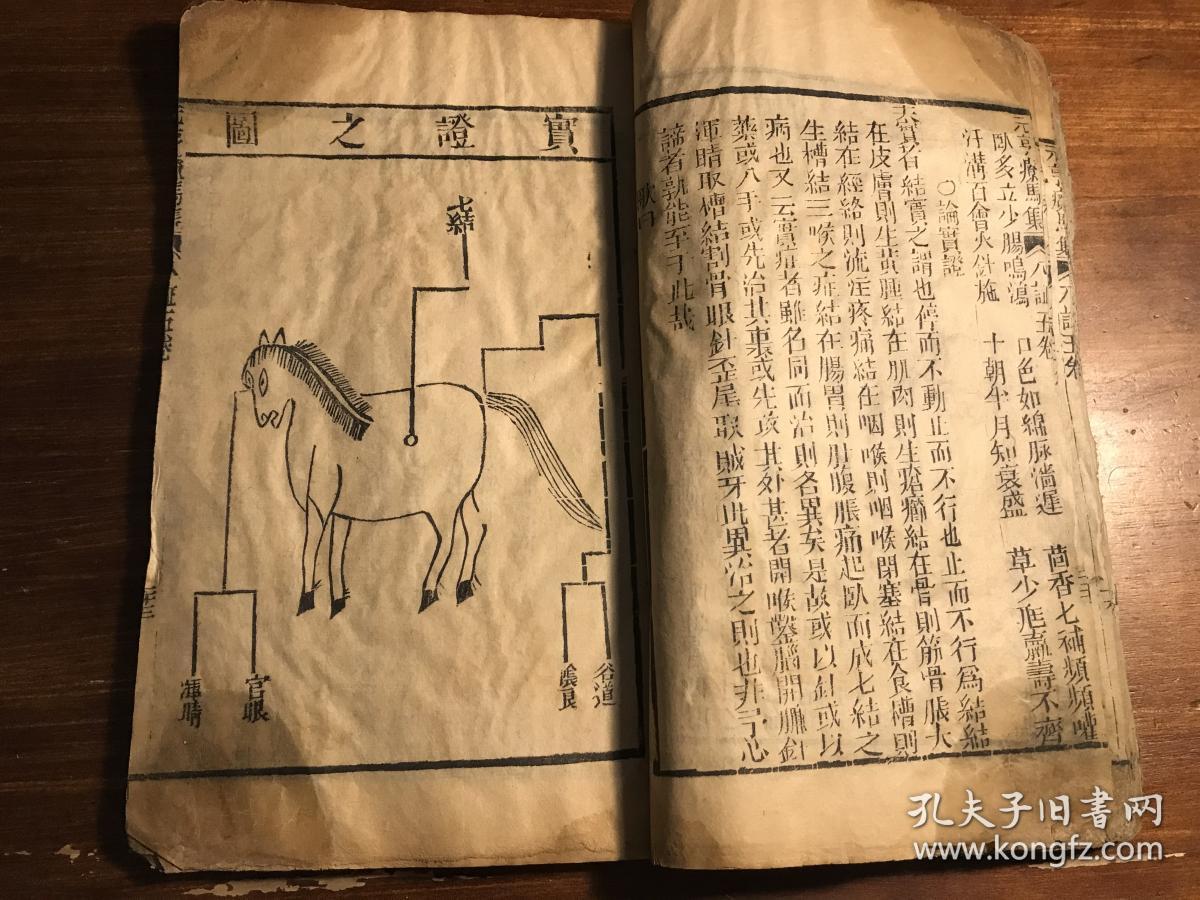 元亨療馬集 八証五卷
臥多立少腸鳴瀉 口色如綿脉淌遲 茴香七補頻頻嚾
汗溝百會火針施 十朝半月知衰盛 草少形羸壽不齊
〇論實證
夫實者結實之謂也停而不動止而不行也止而不行為結結
在皮膚則生黃腫結在肌肉則生瘡癤結在骨則筋骨脹大
結在經絡則流注疼痛結在咽喉則咽喉閉塞結在食槽則
生槽結三喉之症結在腸胃則肚腹脹痛起臥而成七結之
病也又云實症者雖名同而治則各異矣是故或以針或以
藥或八手或先治其裏或先攻其外甚者開喉鑿腦開臁針
渾睛取槽結割骨眼針歪尾取賊牙此異治之則也非予心
諦者孰能至于此哉
歌曰
實證之圖
七結
谷道
官眼
渾睛
孔夫子旧书网
www.kongfz.com